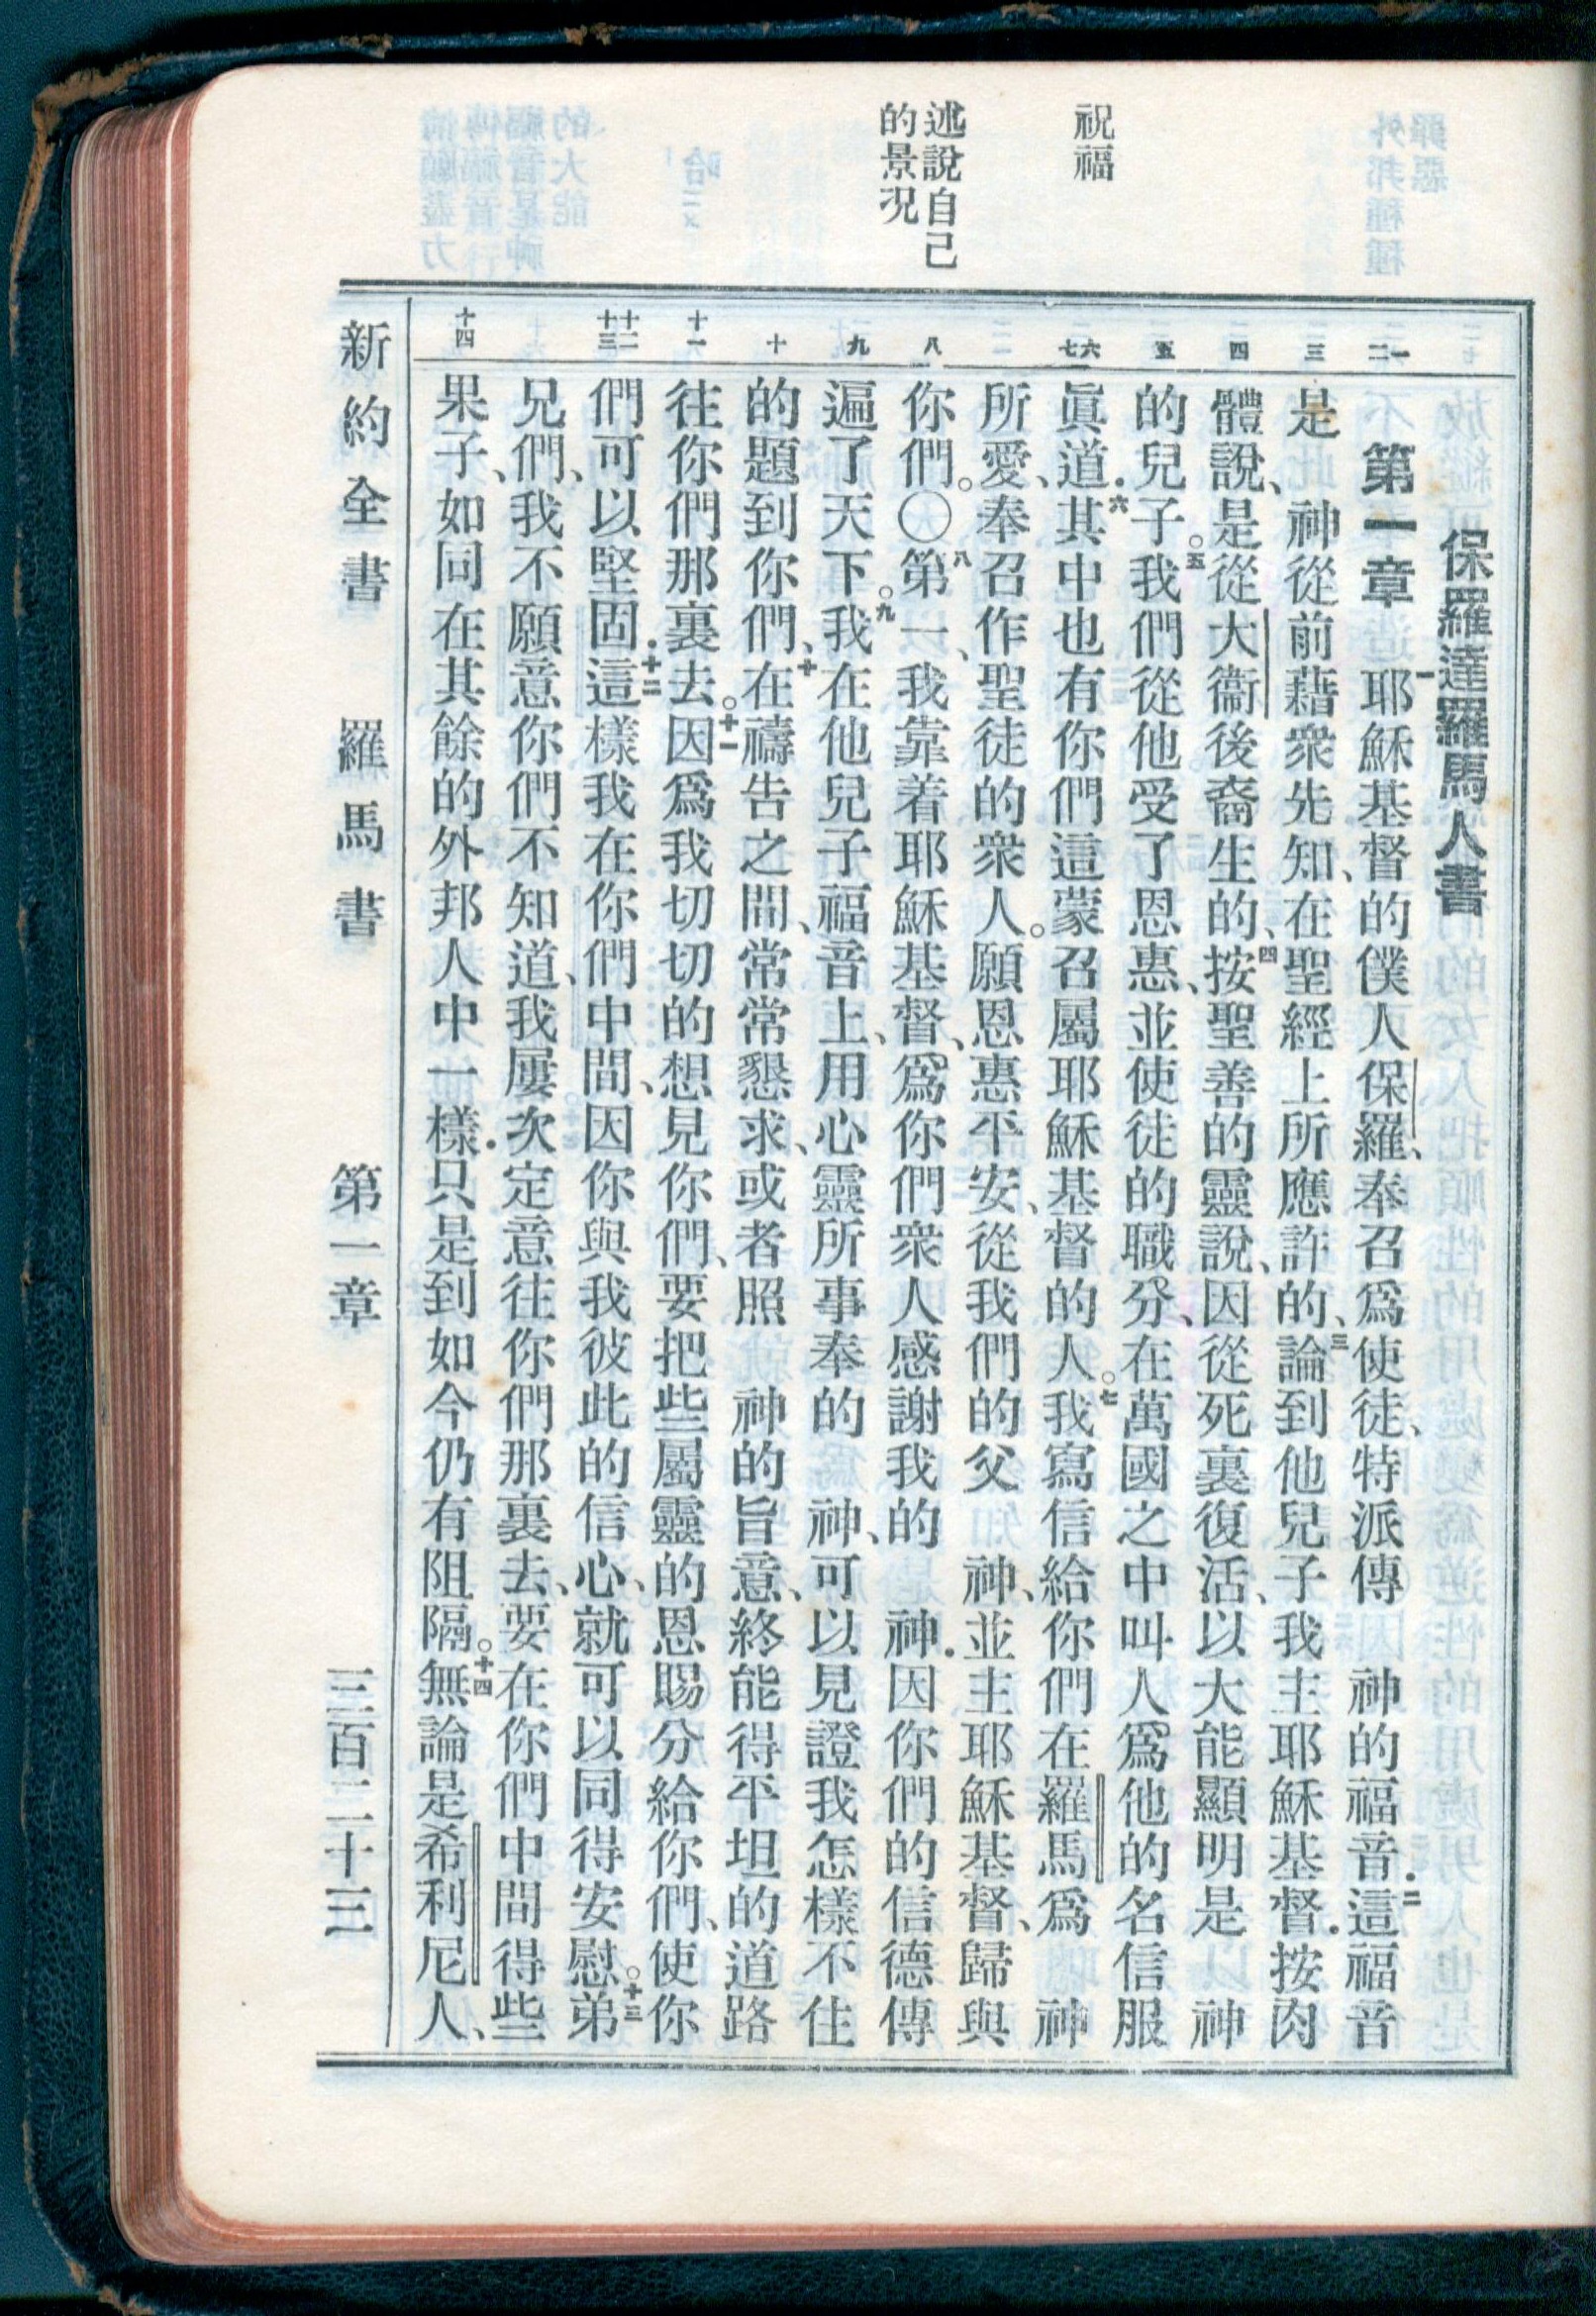 祝福
述說自己
的景况
一
二
三
四
五
六
七
八
九
十
十一
十二
十三
十四
保羅達羅馬人書
第一章 一耶穌基督的僕人保羅、奉召爲使徒、特派傳 神的福音.二這福音
是 神從前藉衆先知、在聖經上所應許的、三論到他兒子我主耶穌基督.按肉
體說、是從大衞後裔生的、四按聖善的靈說、因從死裏復活、以大能顯明是 神
的兒子。五我們從他受了恩惠、並使徒的職分、在萬國之中叫人爲他的名信服
眞道.六其中也有你們這蒙召屬耶穌基督的人。七我寫信給你們在羅馬爲 神
所愛、奉召作聖徒的衆人。願恩惠平安、從我們的父 神、並主耶穌基督、歸與
你們。〇八第一、我靠着耶穌基督、爲你們衆人感謝我的 神.因你們的信德傳
遍了天下。九我在他兒子福音上、用心靈所事奉的 神、可以見證我怎樣不住
的題到你們、十在禱告之間、常常懇求、或者照 神的旨意、終能得平坦的道路
往你們那裏去。十一因爲我切切的想見你們、要把些屬靈的恩賜分給你們、使你
們可以堅固.十二這樣我在你們中間、因你與我彼此的信心、就可以同得安慰。十三弟
兄們、我不願意你們不知道、我屢次定意往你們那裏去、要在你們中間得些
果子、如同在其餘的外邦人中一樣.只是到如今仍有阻隔。十四無論是希利尼人、
新約全書 羅馬書 第一章 三百二十三